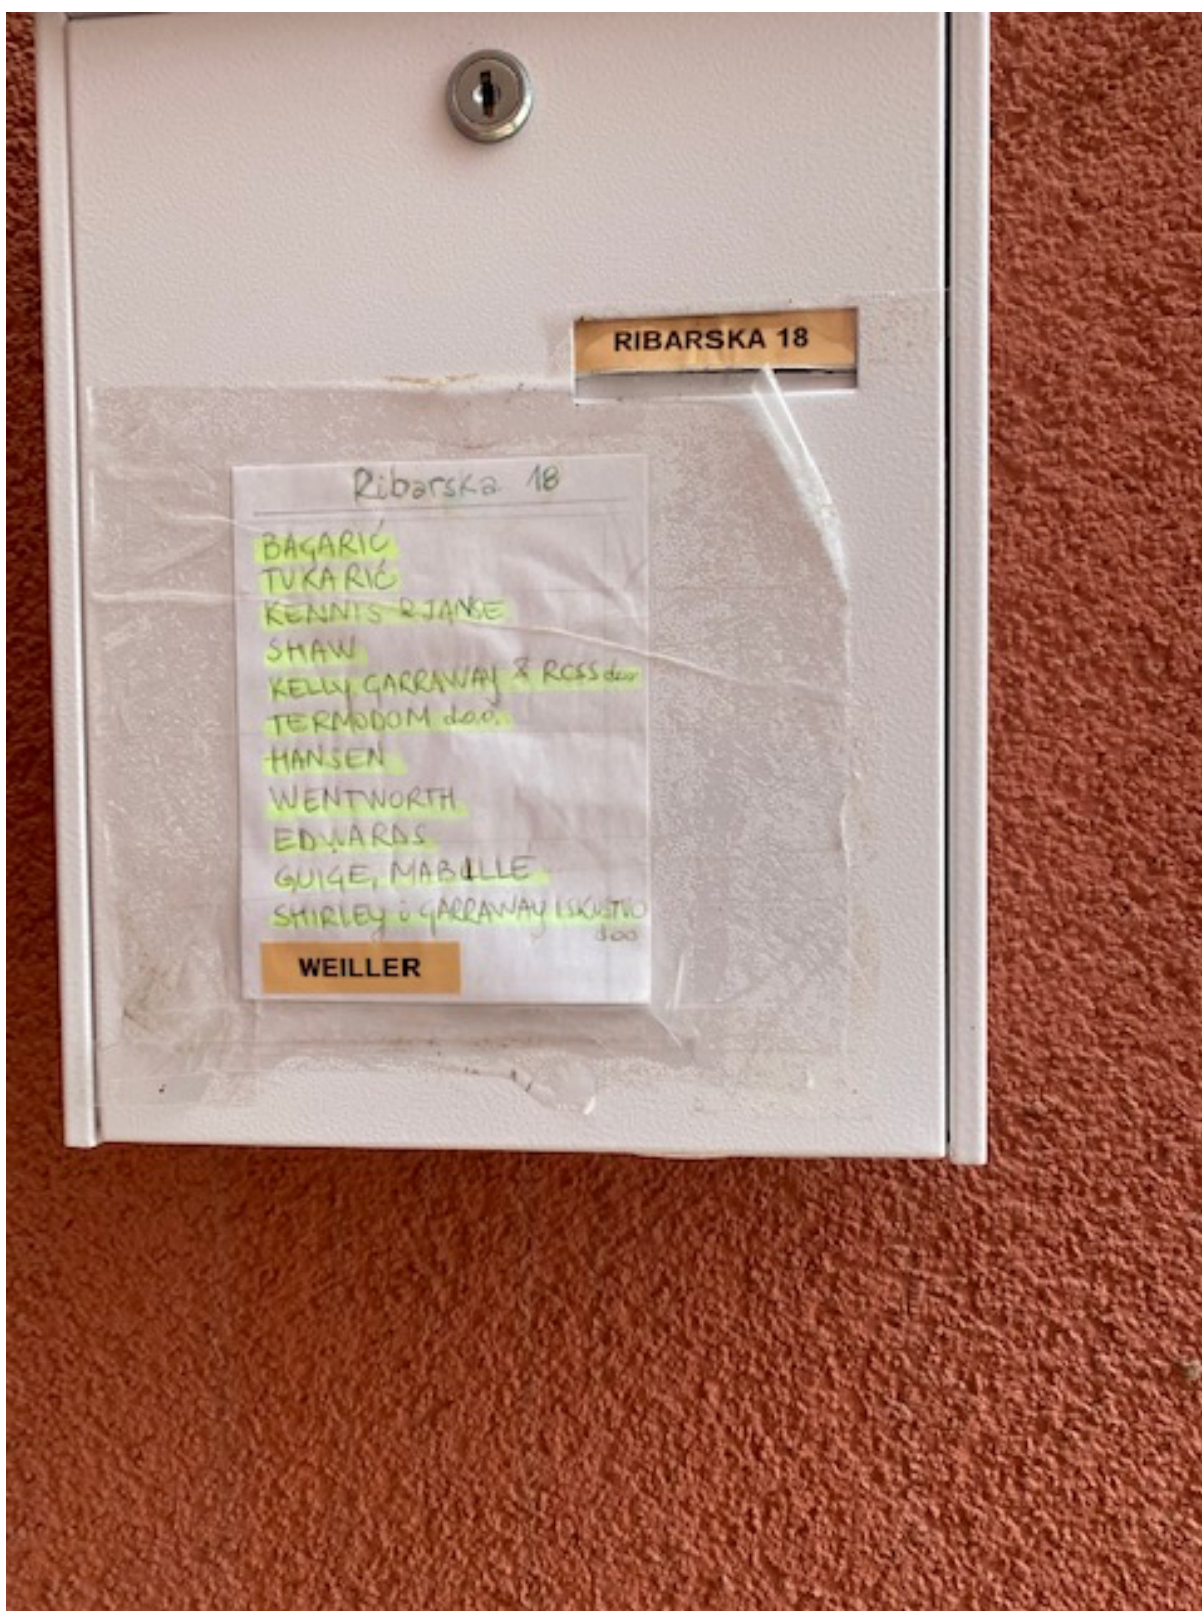 RIBARSKA 18
Ribarska 18
BAGARIĆ
TUKARIĆ
KENNIS & JANSE
SHAW
KELLY GARRAWAY & ROSS doo
TERMODOM d.o.o.
HANSEN
WENTWORTH
EDWARDS
GUIGE, MABILLE
SHIRLEY i GARRAWAY ISKUSTVO
doo
WEILLER